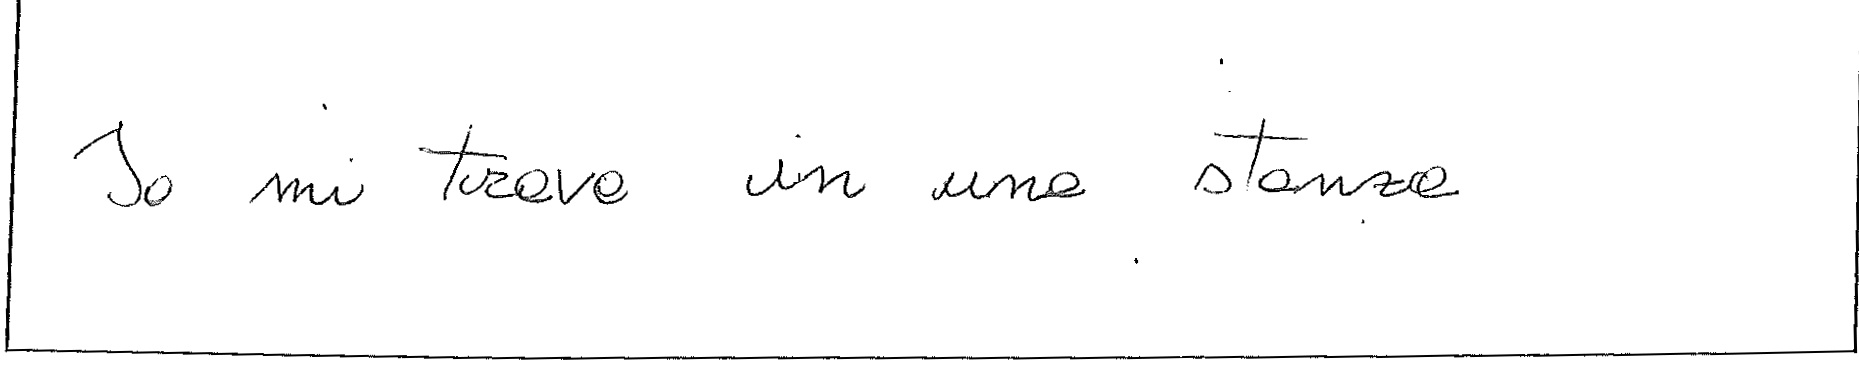 Io mi trava in una stanza